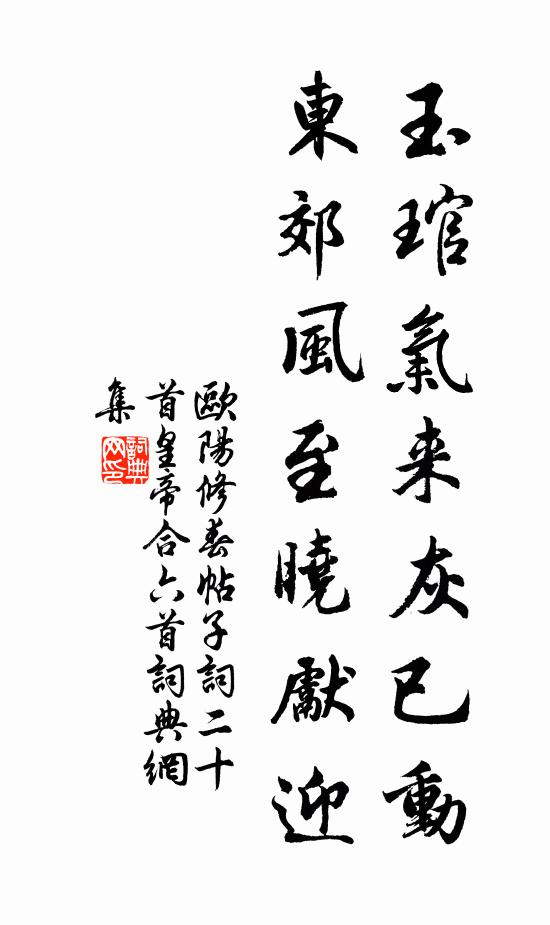 玉琯氣来灰已動
東郊風至曉獻迎
歐陽修春帖子詞二十
首皇帝合六首詞典網
集
詞典
网印